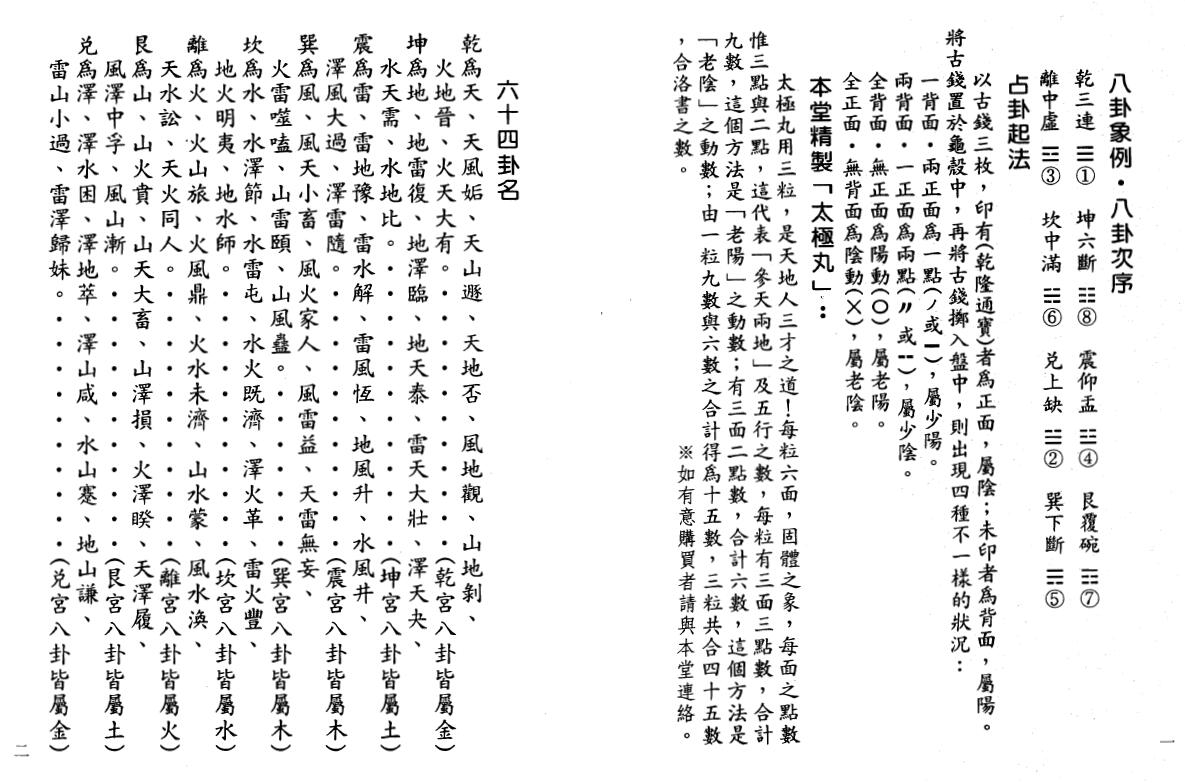 八卦象例・八卦次序
乾三連 ☰① 坤六斷 ☷⑧ 震仰盂 ☳④ 艮覆碗 ☶⑦
離中虛 ☲③ 坎中滿 ☵⑥ 兌上缺 ☱② 巽下斷 ☴⑤
占卦起法
以古錢三枚，印有(乾隆通寶)者為正面，屬陰；未印者為背面，屬陽。
將古錢置於龜殼中，再將古錢擲入盤中，則出現四種不一樣的狀況：
一背面・兩正面為一點(ノ或━)，屬少陽。
兩背面・一正面為兩點(〃或╍)，屬少陰。
全背面・無正面為陽動(○)，屬老陽。
全正面・無背面為陰動(×)，屬老陰。
本堂精製「太極丸」：
太極丸用三粒，是天地人三才之道！每粒六面，固體之象，每面之點數
惟三點與二點，這代表「參天兩地」及五行之數，每粒有三面三點數，合計
九數，這個方法是「老陽」之動數；有三面二點數，合計六數，這個方法是
「老陰」之動數；由一粒九數與六數之合計得為十五數，三粒共合四十五數
，合洛書之數。
※如有意購買者請與本堂連絡。
一
六十四卦名
乾為天、天風姤、天山遯、天地否、風地觀、山地剝、
火地晉、火天大有。・・・・・・・・・・(乾宮八卦皆屬金)
坤為地、地雷復、地澤臨、地天泰、雷天大壯、澤天夬、
水天需、水地比。・・・・・・・・・・・(坤宮八卦皆屬土)
震為雷、雷地豫、雷水解、雷風恆、地風升、水風井、
澤風大過、澤雷隨。・・・・・・・・・・(震宮八卦皆屬木)
巽為風、風天小畜、風火家人、風雷益、天雷無妄、
火雷噬嗑、山雷頤、山風蠱。・・・・・・(巽宮八卦皆屬木)
坎為水、水澤節、水雷屯、水火既濟、澤火革、雷火豐、
地火明夷、地水師。・・・・・・・・・・(坎宮八卦皆屬水)
離為火、火山旅、火風鼎、火水未濟、山水蒙、風水渙、
天水訟、天火同人。・・・・・・・・・・(離宮八卦皆屬火)
艮為山、山火賁、山天大畜、山澤損、火澤睽、天澤履、
風澤中孚、風山漸。・・・・・・・・・・(艮宮八卦皆屬土)
兌為澤、澤水困、澤地萃、澤山咸、水山蹇、地山謙、
雷山小過、雷澤歸妹。・・・・・・・・・(兌宮八卦皆屬金)
二